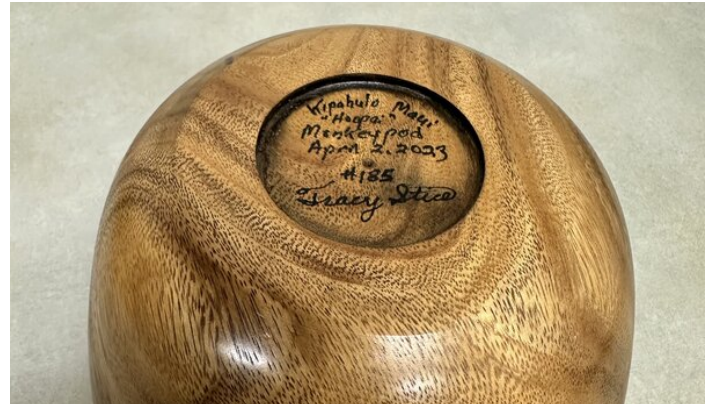 Kipahulo Maui
"Haapai"
Monkeypod
April 2.2023
#185
Tracy Stice